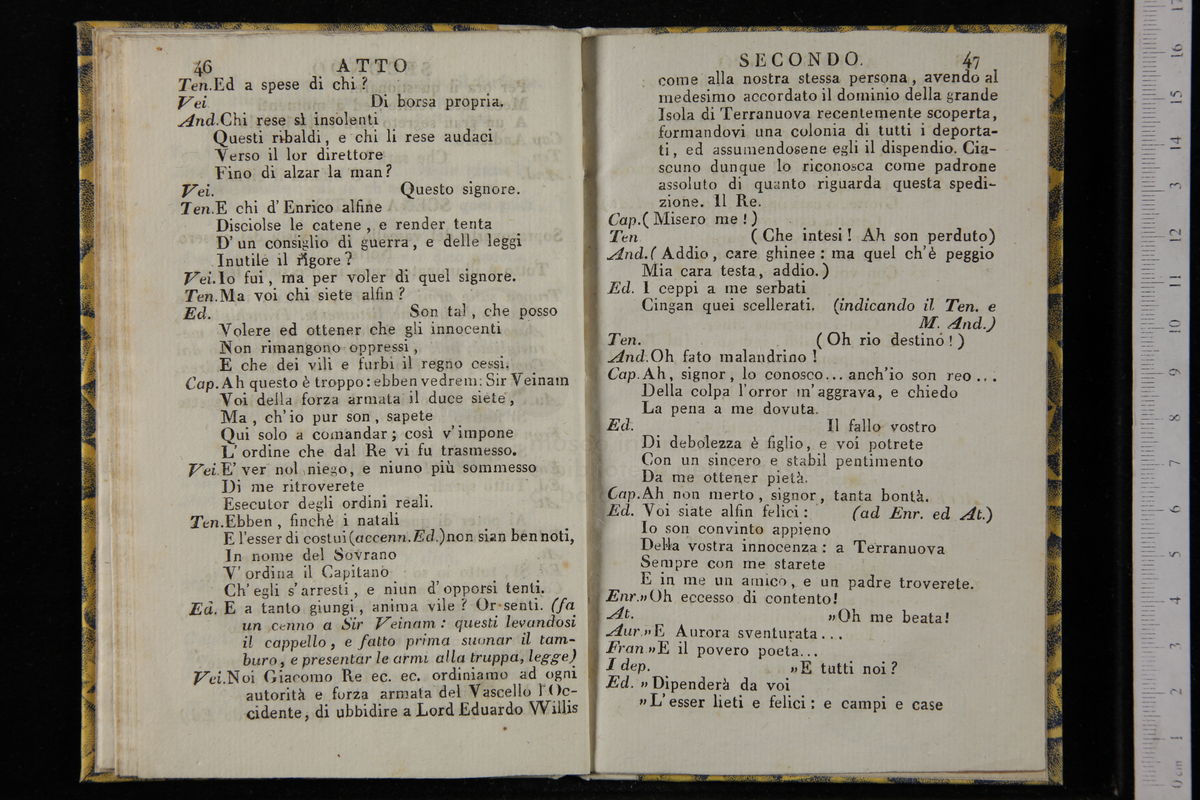 46 ATTO
Ten.Ed a spese di chi?
Vei. Di borsa propria.
And.Chi rese sì insolenti
Questi ribaldi, e chi li rese audaci
Verso il lor direttore
Fino di alzar la man?
Vei. Questo signore.
Ten.E chi d'Enrico alfine
Disciolse le catene, e render tenta
D'un consiglio di guerra, e delle leggi
Inutile il rigore?
Vei.Io fui, ma per voler di quel signore.
Ten.Ma voi chi siete alfin?
Ed. Son tal, che posso
Volere ed ottener che gli innocenti
Non rimangono oppressi,
E che dei vili e furbi il regno cessi.
Cap.Ah questo è troppo: ebben vedrem: Sir Veinam
Voi della forza armata il duce siete,
Ma, ch'io pur son, sapete
Qui solo a comandar; così v'impone
L'ordine che dal Re vi fu trasmesso.
Vei.E' ver nol niego, e niuno più sommesso
Di me ritroverete
Esecutor degli ordini reali.
Ten.Ebben, finchè i natali
E l'esser di costui (accenn.Ed.) non sian ben noti,
In nome del Sovrano
V'ordina il Capitano
Ch'egli s'arresti, e niun d'opporsi tenti.
Ed. E a tanto giungi, anima vile? Or senti. (fa
un cenno a Sir Veinam: questi levandosi
il cappello, e fatto prima suonar il tam-
buro, e presentar le armi alla truppa, legge)
Vei.Noi Giacomo Re ec. ec. ordiniamo ad ogni
autorità e forza armata del Vascello l'Oc-
cidente, di ubbidire a Lord Eduardo Willis
SECONDO. 47
come alla nostra stessa persona, avendo al
medesimo accordato il dominio della grande
Isola di Terranuova recentemente scoperta,
formandovi una colonia di tutti i deporta-
ti, ed assumendosene egli il dispendio. Cia-
scuno dunque lo riconosca come padrone
assoluto di quanto riguarda questa spedi-
zione. Il Re.
Cap.(Misero me!)
Ten (Che intesi! Ah son perduto)
And.(Addio, care ghinee: ma quel ch'è peggio
Mia cara testa, addio.)
Ed. I ceppi a me serbati
Cingan quei scellerati. (indicando il Ten. e
M. And.)
Ten. (Oh rio destino!)
And.Oh fato malandrino!
Cap.Ah, signor, lo conosco... anch'io son reo...
Della colpa l'orror m'aggrava, e chiedo
La pena a me dovuta.
Ed. Il fallo vostro
Di debolezza è figlio, e voi potrete
Con un sincero e stabil pentimento
Da me ottener pietà.
Cap.Ah non merto, signor, tanta bontà.
Ed. Voi siate alfin felici: (ad Enr. ed At.)
Io son convinto appieno
Della vostra innocenza: a Terranuova
Sempre con me starete
E in me un amico, e un padre troverete.
Enr.»Oh eccesso di contento!
At. »Oh me beata!
Aur.»E Aurora sventurata...
Fran»E il povero poeta...
I dep. »E tutti noi?
Ed. »Dipenderà da voi
»L'esser lieti e felici: e campi e case
0 cm 1 2 3 4 5 6 7 8 9 10 11 12 13 14 15 16 17